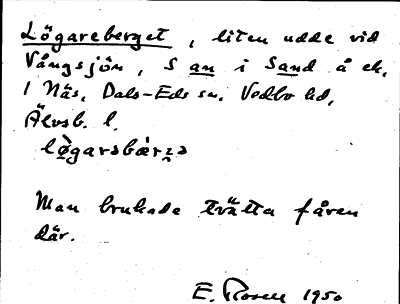 Lögareberget, liten udde vid
Vångsjön, S an i Sand å ek.
1 Näs, Dals-Eds sn. Vedbo hd,
Älvsb. l.
lø̀garsbær̀zə
Man brukade tvätta fåren
där.
E. Rosell 1950